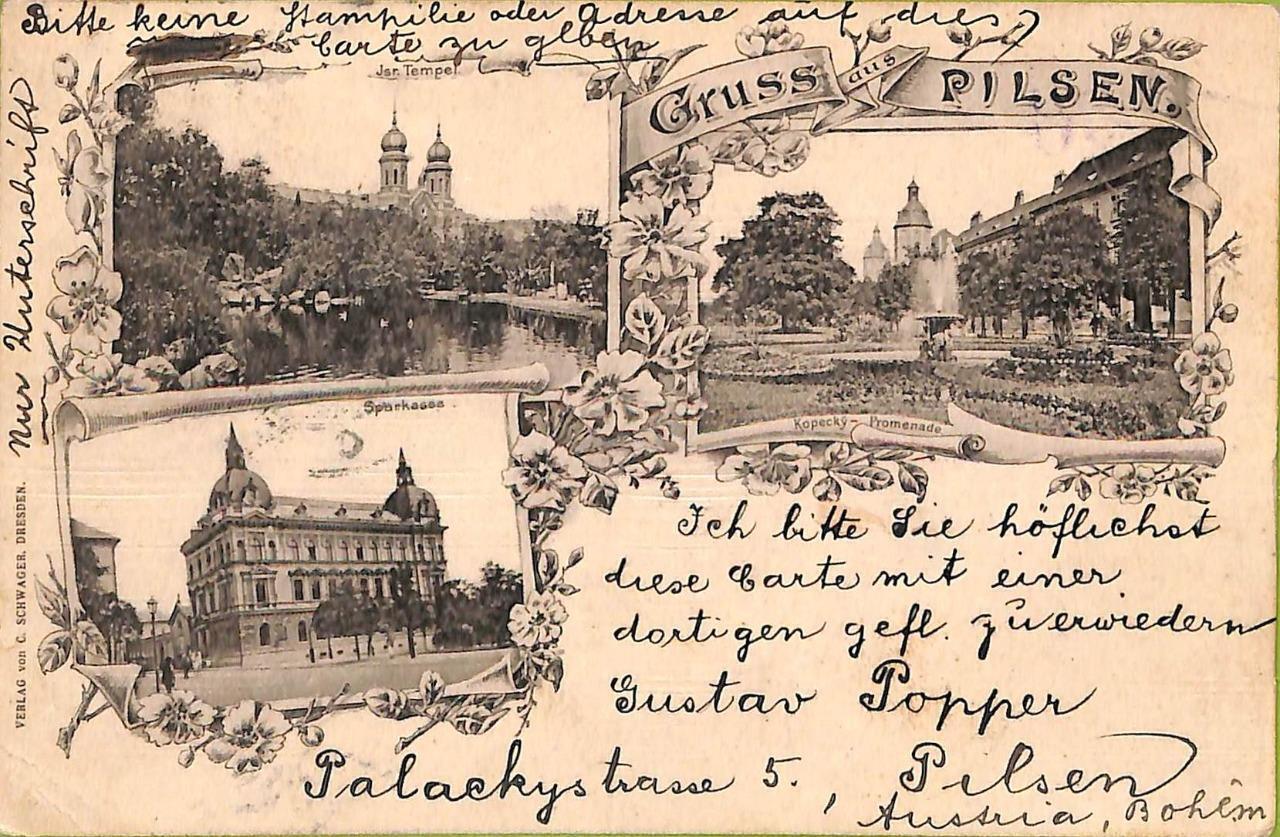 Bitte keine Stampilie oder Adresse auf dies
Carte zu geben
Nur Unterschrift
Jsr. Tempel
Gruss aus PILSEN.
Kopecký-Promenade
Sparkassa
VERLAG von C. SCHWAGER, DRESDEN.
Ich bitte Sie höflichst
diese Carte mit einer
dortigen gefl. zu erwiedern
Gustav Popper
Palackystrasse 5. Pilsen
Austria, Bohêm